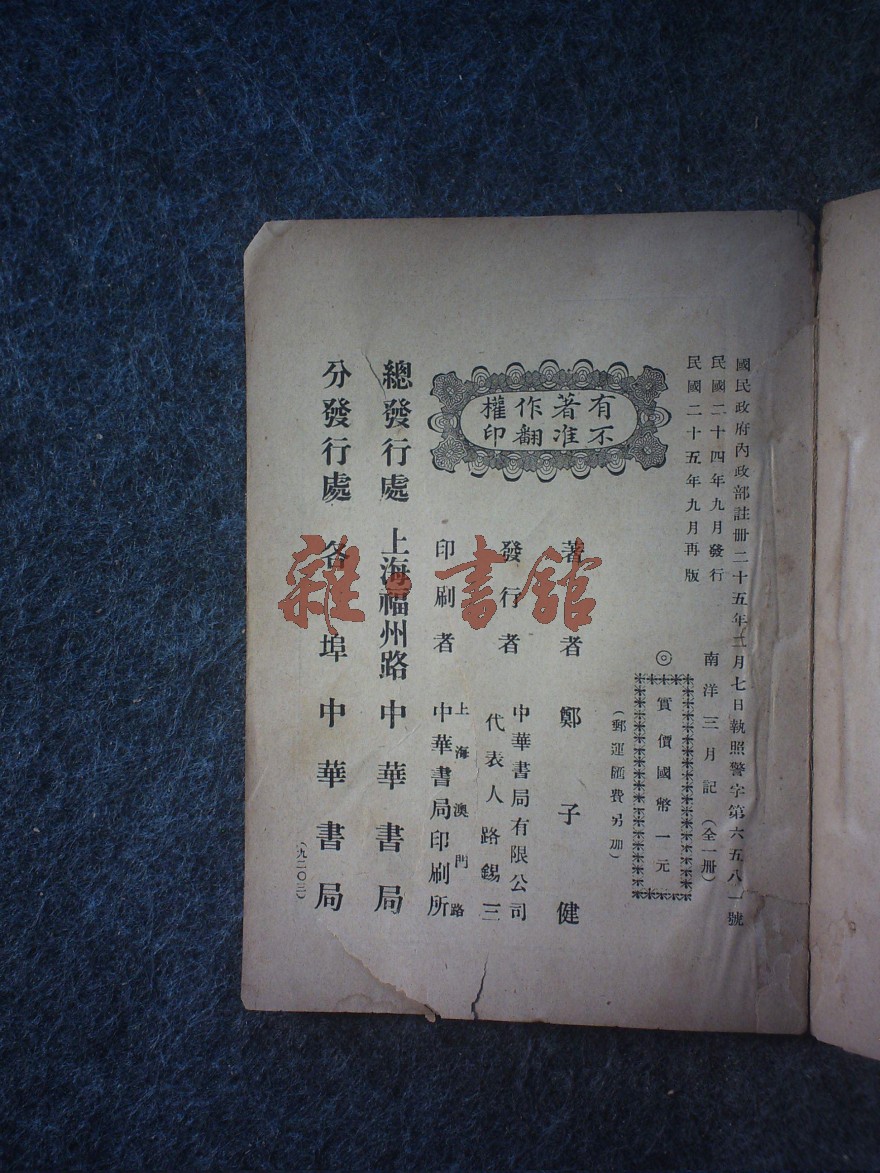 國民政府內政部註冊二十五年二月七日執照警字第六五八一號
民國二十四年九月發行
民國二十五年九月再版
南洋三月記(全一冊)
◎實價國幣一元
(郵運匯費另加)
有著作權
不准翻印
著者 鄭子健
發行者 中華書局有限公司
代表人路錫三
印刷者 上海澳門路
中華書局印刷所
總發行處 上海福州路 中華書局
分發行處 各埠中華書局
(九二〇三)
雜·書館